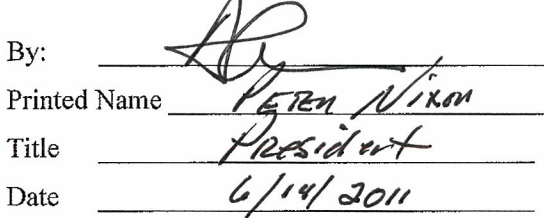 By:
Printed Name Peter Nixon
Title President
Date 6/14/2011